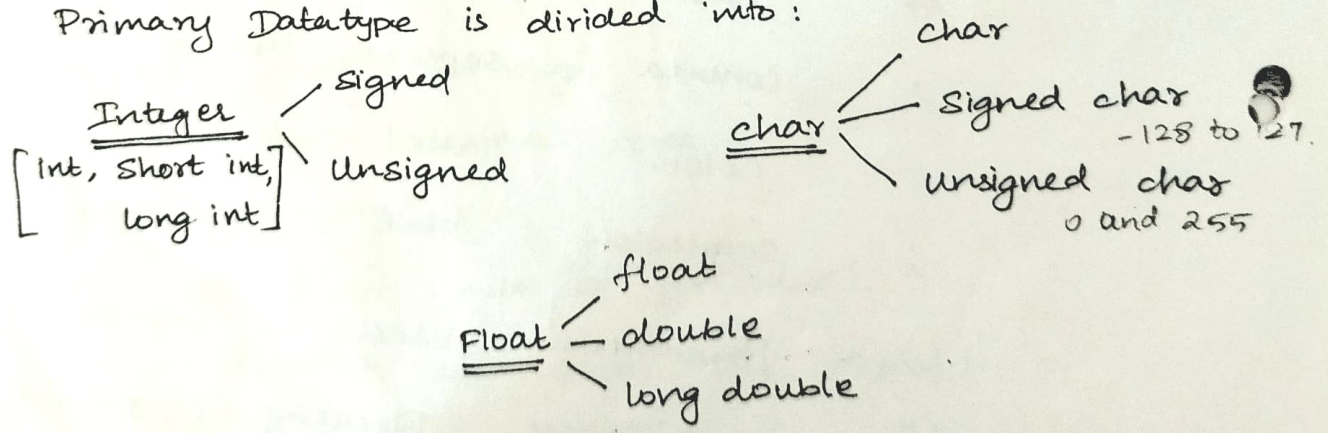 Primary Datatype is divided into :
Integer
signed
Unsigned
[int, Short int,
long int]
char
char
Signed char
-128 to 127.
unsigned char
0 and 255
Float
float
double
long double